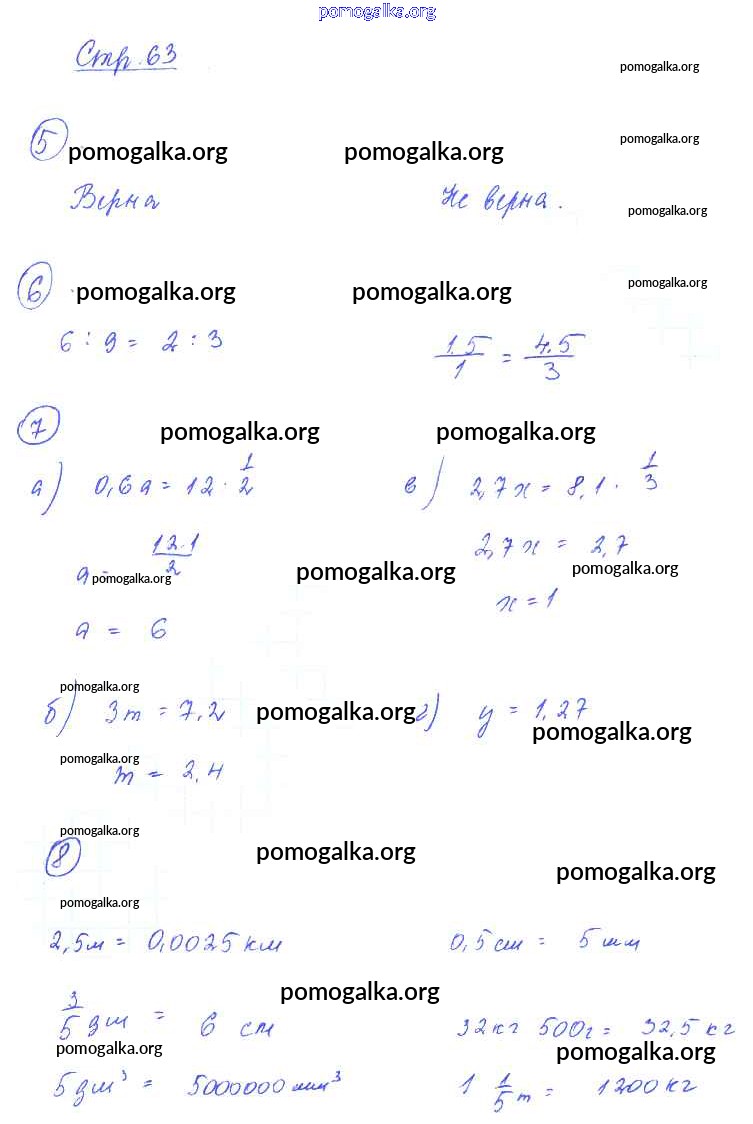 pomogalka.org
Стр. 63
pomogalka.org
5
pomogalka.org pomogalka.org pomogalka.org
Верна Не верна.
pomogalka.org
6 pomogalka.org pomogalka.org pomogalka.org
6 : 9 = 2 : 3 1.5/1 = 4.5/3
7 pomogalka.org pomogalka.org
а) 0,6a = 12 · 1/2 в) 2,7x = 8,1 · 1/3
a = 12·1/2 2,7x = 2,7
pomogalka.org pomogalka.org pomogalka.org
a = 6 x = 1
pomogalka.org
б) 3m = 7,2 pomogalka.org г) y = 1,27
pomogalka.org
pomogalka.org
m = 2,4
pomogalka.org
8 pomogalka.org pomogalka.org
pomogalka.org
2,5м = 0,0025 км 0,5 см = 5 мм
pomogalka.org
3/5 дм = 6 см 32кг 500г = 32,5 кг
pomogalka.org pomogalka.org
5 дм³ = 5000000 мм³ 1 1/5 т = 1200 кг